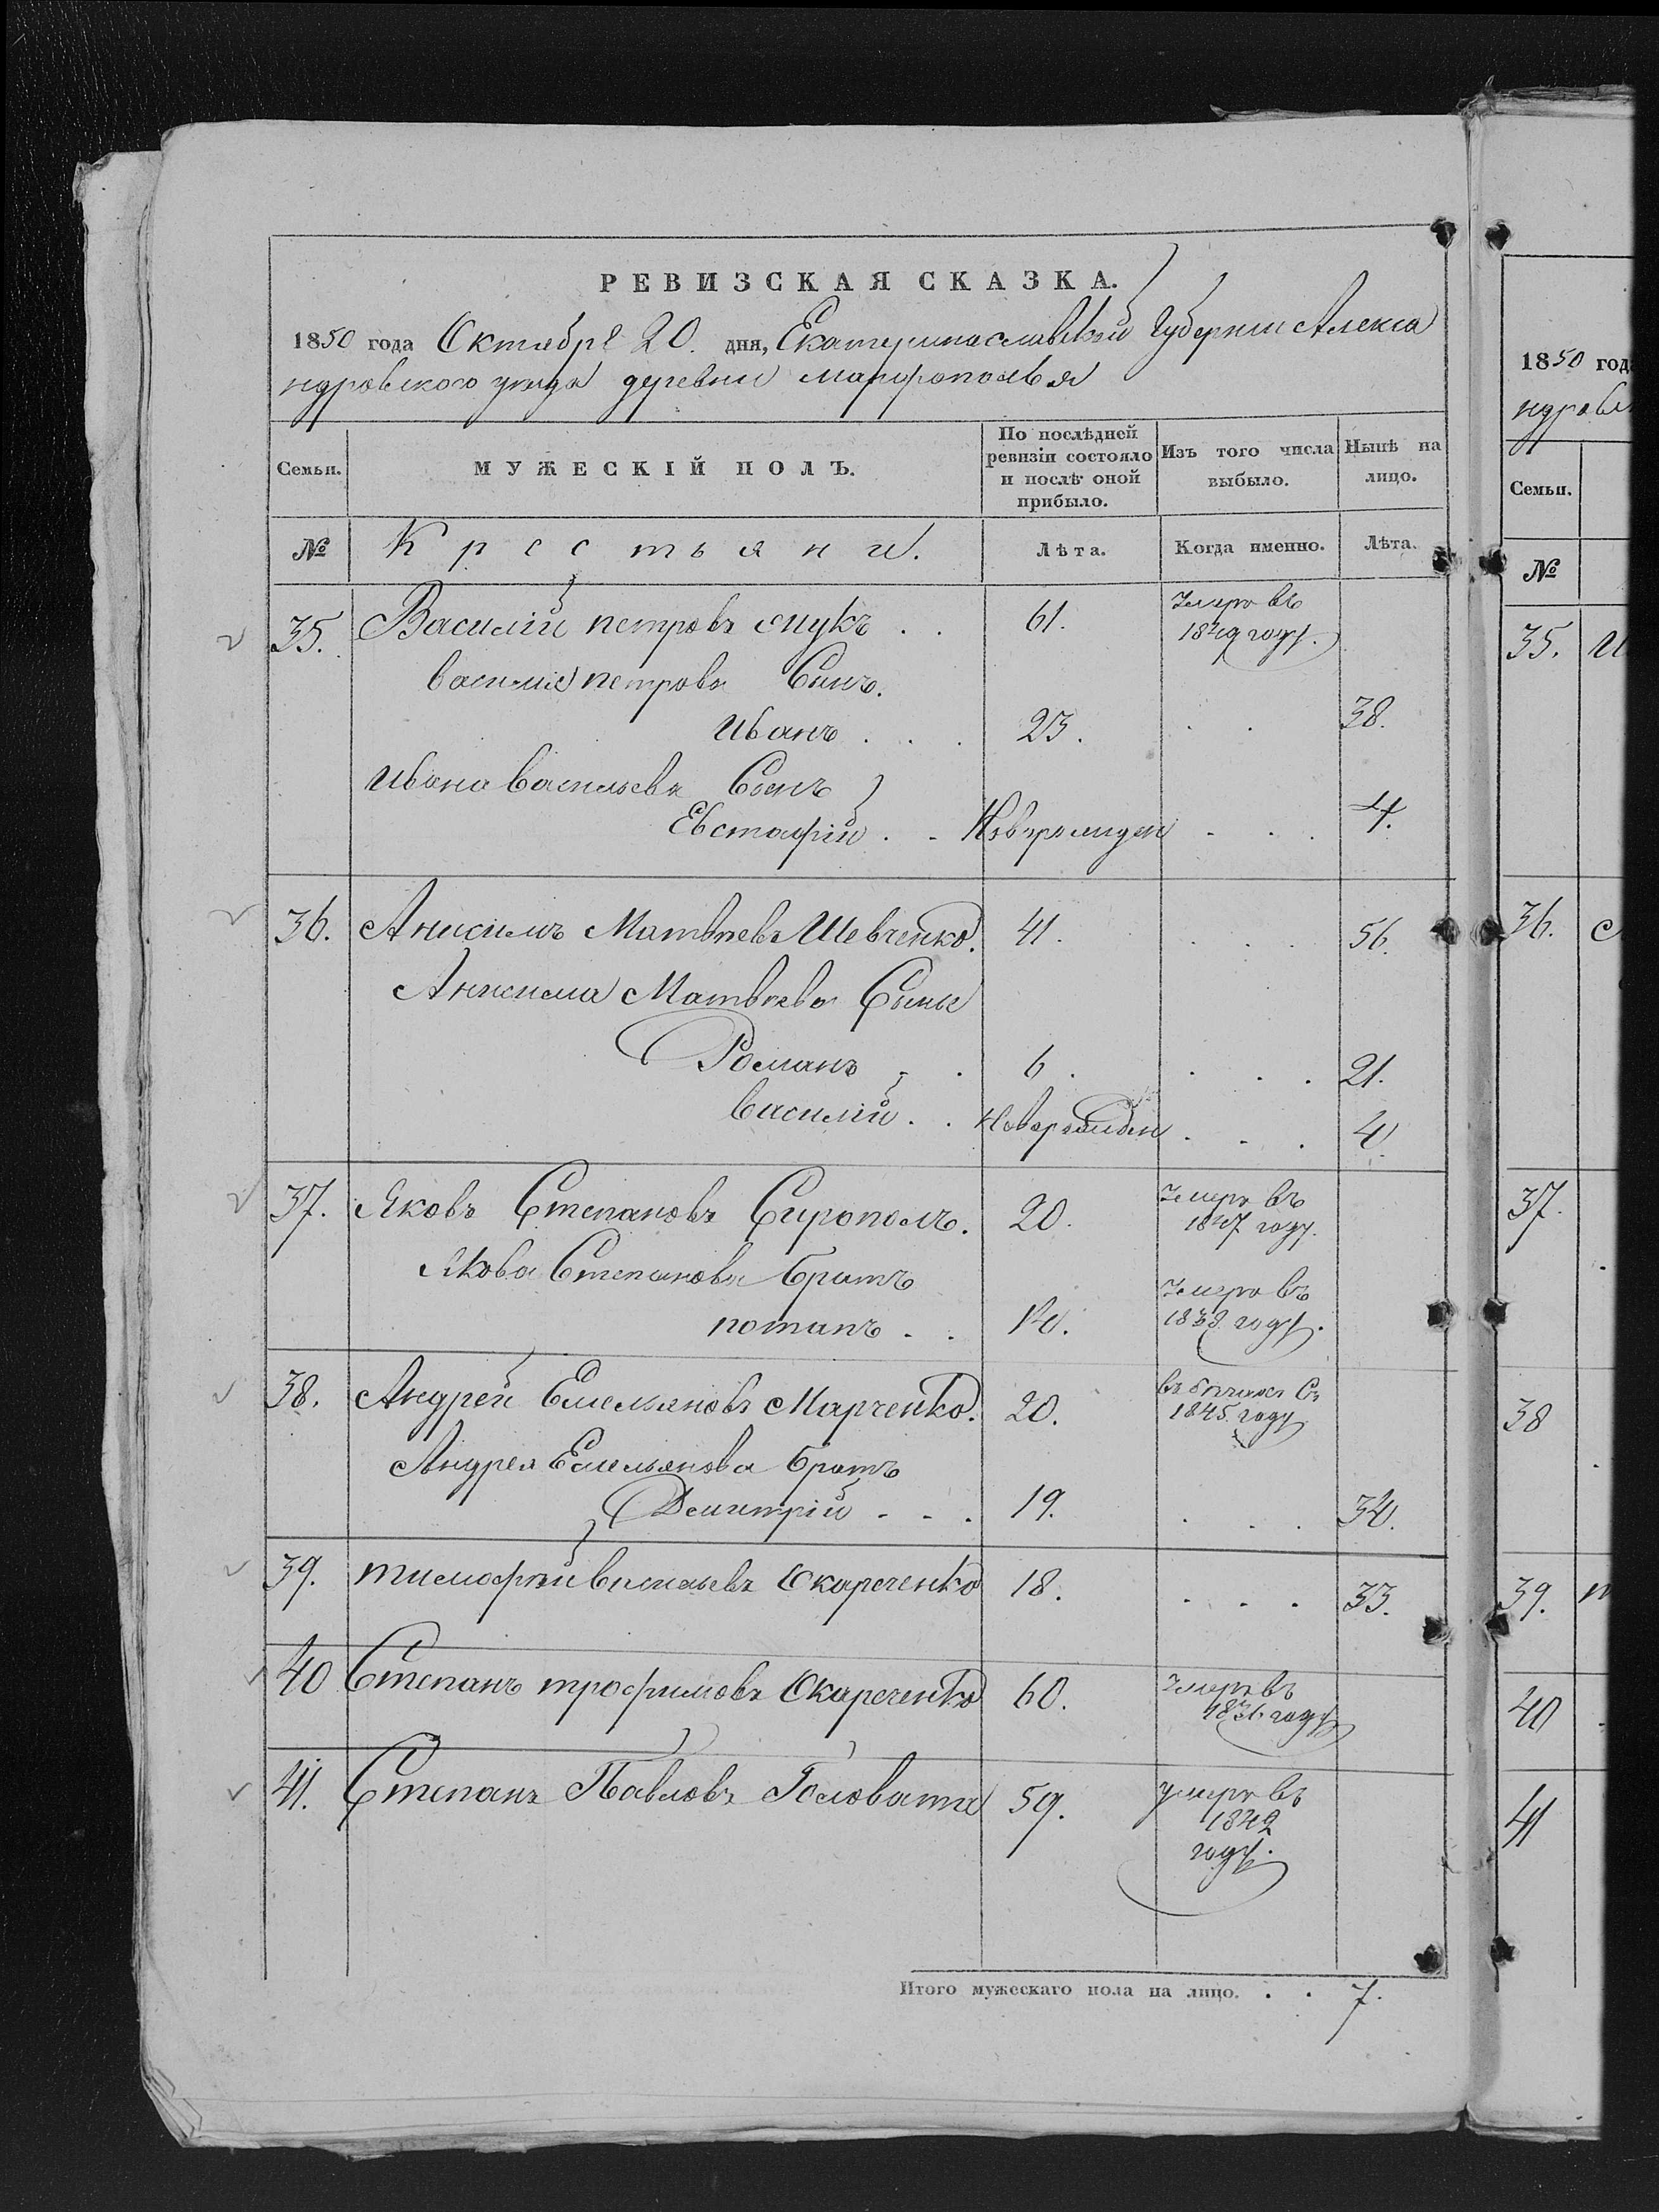 РЕВИЗСКАЯ СКАЗКА.
1850 года Октября 20. дня, Екатеринославской Губернии Алекса
ндровского уезда деревни Марфополья
Семьи. МУЖЕСКІЙ ПОЛЪ. По послѣдней ревизіи состояло и послѣ оной прибыло. Изъ того числа выбыло. Нынѣ на лицо.
№ Крестьяни. Лѣта. Когда именно. Лѣта.
35. Василій петровъ 61. Умеръ въ 1849 году.
василия петрова Сынъ.
Иванъ . . . 23. . . 38.
Ивана васильева Сынъ
Евстафій . . Новорожден . . . 4.
36. Анисимъ Матвѣевъ Шевченко. 41. . . . 56.
Анисима Матвѣева Сыны
Романъ . . 6. . . . 21.
василій . . Новорожден . . . 4
37. Яковъ Степановъ Сирополъ. 20. Умеръ въ 1847 году.
Якова Степанова братъ
потапъ . . 14. Умеръ въ 1838 году.
38. Андрей Емельяновъ Марченко. 20. въ бѣгахъ Съ 1845 году
Андрея Емельянова братъ
Дмитрій . . . 19. . . . 34.
39. тимофѣй васильевъ Скареченко 18. . . . 33.
40 Степанъ трофимовъ Скареченко 60. Умеръ въ 1836 году
41. Степанъ Павловъ Головатий 59. умеръ въ 1842 году.
Итого мужескаго пола на лицо. . . 7.
1850 года
ндровск
Семьи.
№
35. И
36.
37.
38
39.
40
41